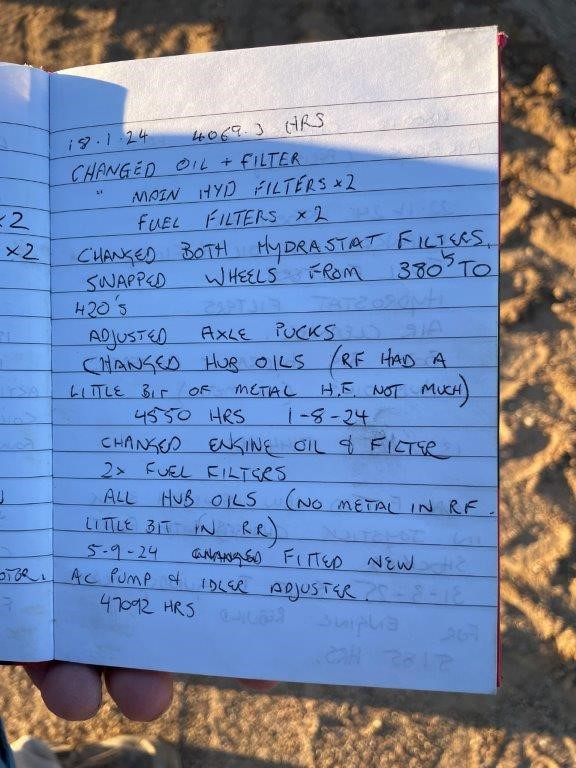 18.1.24 4069.3 HRS
CHANGED OIL + FILTER
" MAIN HYD FILTERS x2
FUEL FILTERS x2
x2
CHANGED BOTH HYDRASTAT FILTERS.
x2
SWAPPED WHEELS FROM 380'S TO
420'S
ADJUSTED AXLE PUCKS
CHANGED HUB OILS (RF HAD A
LITTLE BIT OF METAL H.F. NOT MUCH)
4550 HRS 1-8-24
CHANGED ENGINE OIL & FILTER
2x FUEL FILTERS
ALL HUB OILS (NO METAL IN RF.
LITTLE BIT IN RR)
5-9-24 CHANGED FITTED NEW
AC PUMP & IDLER ADJUSTER.
47092 HRS